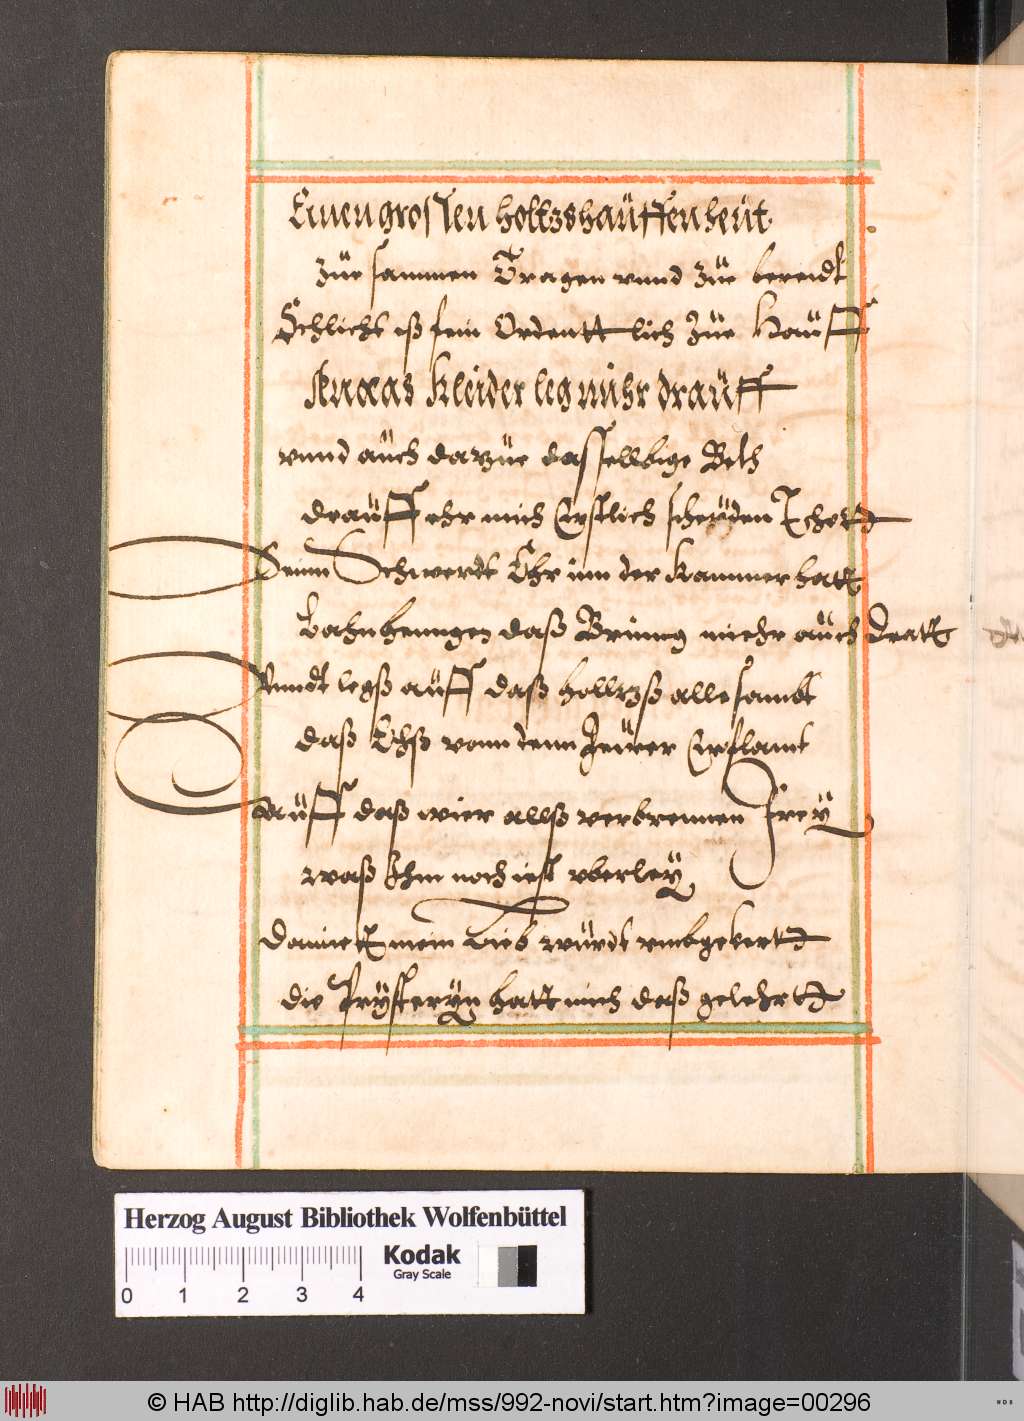 Einen grossen holtzshauffen heüt.
züe sammen Tragen vnnd züe bereidt
Schlicht iß fein Ordenttlich züe Hauff
Aneas Kleider leg mihr drauff
vnnd auch darzüe dasselbige Beth
drauff ehr mich Erstlich
Seinn Schwerdt Ehr inn der Kammer hatt
daß Bringg miehr auch dratt
Vnndt legß auff daß holltzß alle sambt
daß Ehß vonn denn
auff daß wier allß verbrennen frey
waß Ihm noch ist vberley
Damitt mein Lieb würdt vmbgekertt
die Prysteryn hatt mich daß gelehrtt
Herzog August Bibliothek Wolfenbüttel
Kodak
Gray Scale
0 1 2 3 4
© HAB http://diglib.hab.de/mss/992-novi/start.htm?image=00296